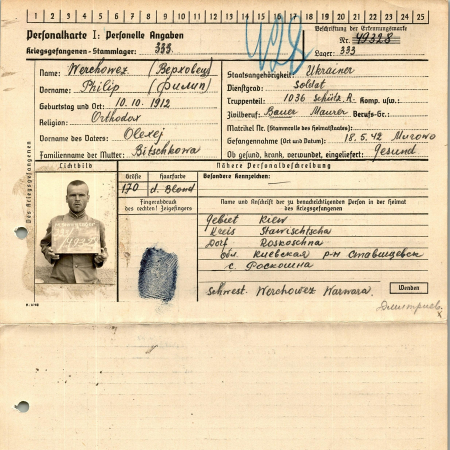 1 2 3 4 5 6 7 8 9 10 11 12 13 14 15 16 17 18 19 20 21 22 23 24 25
Personalkarte I: Personelle Angaben
Kriegsgefangenen-Stammlager: 333
Beschriftung der Erkennungsmarke
Nr. 49328
Lager: 333
428
Des Kriegsgefangenen
Name: Werchowez (Верховец)
Vorname: Philip (Филип)
Geburtstag und Ort: 10.10.1912
Religion: Orthodox
Vorname des Vaters: Olexej
Familienname der Mutter: Bitschkowa
Staatsangehörigkeit: Ukrainer
Dienstgrad: Soldat
Truppenteil: 1036 Schütz. R. Komp. usw.:
Zivilberuf: Bauer Maurer Berufs-Gr.:
Matrikel Nr. (Stammrolle des Heimatstaates):
Gefangennahme (Ort und Datum): 18.5.42
Ob gesund, krank, verwundet, eingeliefert: Gesund
Lichtbild
Nähere Personalbeschreibung
Größe Haarfarbe Besondere Kennzeichen:
170 d. Blond
Fingerabdruck
des rechten! Zeigefingers
Name und Anschrift der zu benachrichtigenden Person in der Heimat
des Kriegsgefangenen
Gebiet Kiew
Kreis Stawischtscha
Dorf Roskoschna
обл. Киевская р-н Ставищевск
с. Роскошна
Schwest. Werchowez Warwara.
Wenden